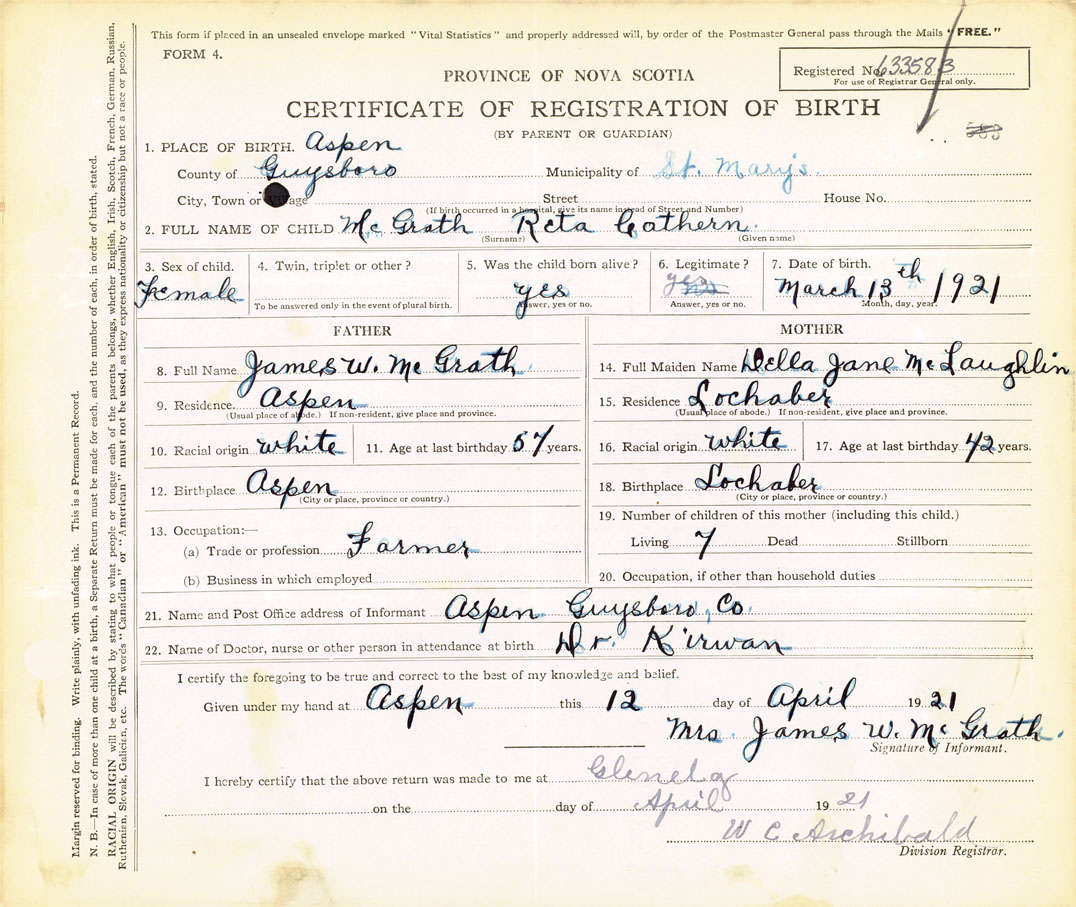 This form if placed in an unsealed envelope marked "Vital Statistics" and properly addressed will, by order of the Postmaster General pass through the Mails "FREE."
FORM 4.
Registered No. 633583
For use of Registrar General only.
PROVINCE OF NOVA SCOTIA
CERTIFICATE OF REGISTRATION OF BIRTH
(BY PARENT OR GUARDIAN)
1. PLACE OF BIRTH. Aspen
County of Guysboro Municipality of St. Marys.
City, Town or Street House No.
(If birth occurred in a hospital, give its name instead of Street and Number)
2. FULL NAME OF CHILD Mc Grath Reta Cathern.
(Surname) (Given name)
3. Sex of child. 4. Twin, triplet or other? 5. Was the child born alive? 6. Legitimate? 7. Date of birth.
Female yes yes March 13th 1921
To be answered only in the event of plural birth. Answer, yes or no. Answer, yes or no. Month, day, year.
FATHER
8. Full Name James W. Mc Grath
9. Residence Aspen
(Usual place of abode.) If non-resident, give place and province.
10. Racial origin white 11. Age at last birthday 57 years.
12. Birthplace Aspen
(City or place, province or country.)
13. Occupation:—
(a) Trade or profession Farmer
(b) Business in which employed
MOTHER
14. Full Maiden Name Della Jane McLaughlin
15. Residence Lochaber
(Usual place of abode.) If non-resident, give place and province.
16. Racial origin white 17. Age at last birthday 42 years.
18. Birthplace Lochaber
(City or place, province or country.)
19. Number of children of this mother (including this child.)
Living 7 Dead Stillborn
20. Occupation, if other than household duties
21. Name and Post Office address of Informant Aspen Guysboro, Co.
22. Name of Doctor, nurse or other person in attendance at birth Dr. Kirwan
I certify the foregoing to be true and correct to the best of my knowledge and belief.
Given under my hand at Aspen this 12 day of April 1921
Mrs. James W. Mc Grath.
Signature of Informant.
I hereby certify that the above return was made to me at Glenelg
on the day of April 1921
W C Archibald
Division Registrar.
Margin reserved for binding. Write plainly, with unfading ink. This is a Permanent Record.
N. B.—In case of more than one child at a birth, a Separate Return must be made for each, and the number of each, in order of birth, stated.
RACIAL ORIGIN will be described by stating to what people or tongue each of the parents belongs, whether English, Irish, Scotch, French, German, Russian,
Ruthenian, Slovak, Galician, etc. The words "Canadian" or "American" must not be used, as they express nationality or citizenship but not a race or people.